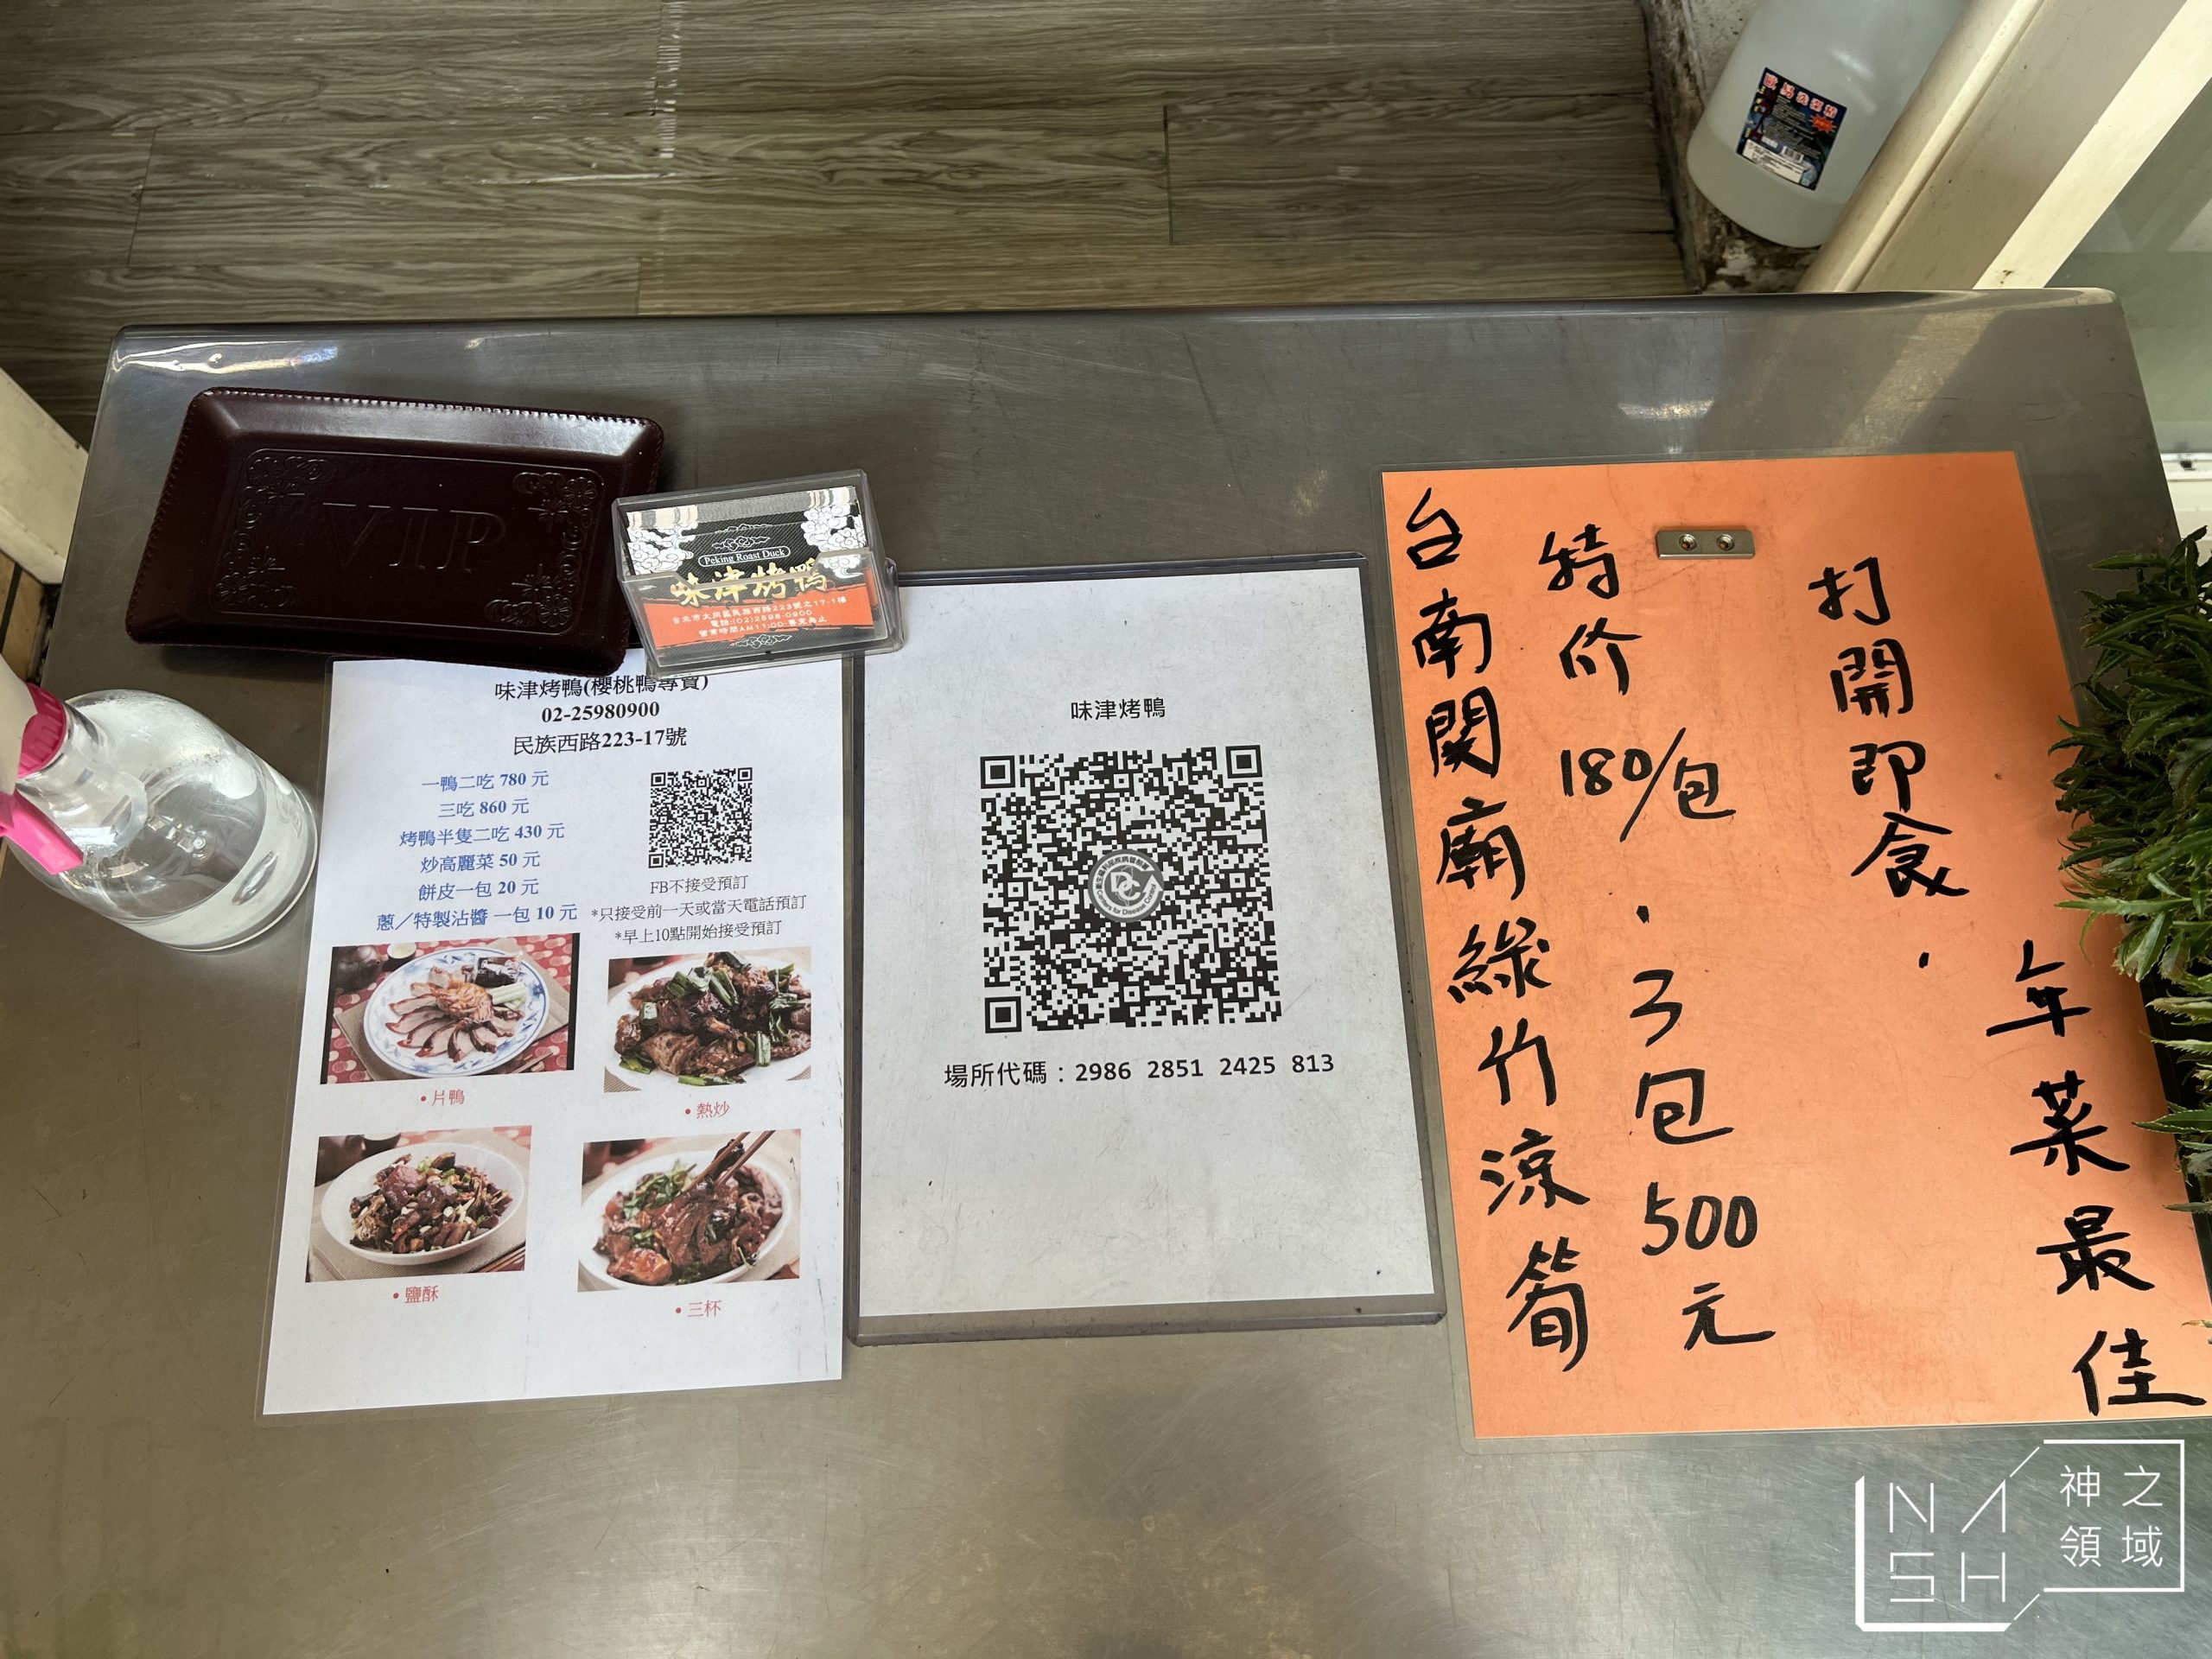 VIP
Peking Roast Duck
味津烤鴨
台北市大同區民族西路223號之17-1樓
電話:(02)2598-0900
營業時間AM11:00-售完為止
味津烤鴨(櫻桃鴨專賣)
02-25980900
民族西路223-17號
一鴨二吃 780 元
三吃 860 元
烤鴨半隻二吃 430 元
炒高麗菜 50 元
餅皮一包 20 元
蔥／特製沾醬 一包 10 元
FB不接受預訂
*只接受前一天或當天電話預訂
*早上10點開始接受預訂
• 片鴨
• 熱炒
• 鹽酥
• 三杯
味津烤鴨
場所代碼：2986 2851 2425 813
台南関廟綠竹涼筍
特价180/包．3包500元
打開即食．
年菜最佳
NASH
神之
領域